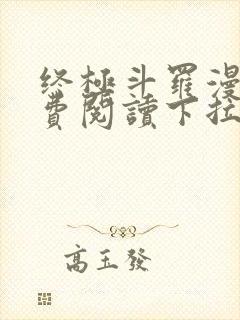 终極斗羅漫
費閱讀下拉
高玉發